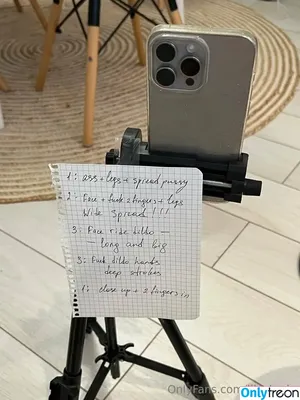 1: ass + legs + spread pussy
2: Face + fuck 2 fingers + legs
Wide Spread !!!
3: Face ride dildo —
— long and big
3: Fuck dildo hands
deep strokes
1: close up + 2 fingers in
OnlyFans.com
Onlytreon